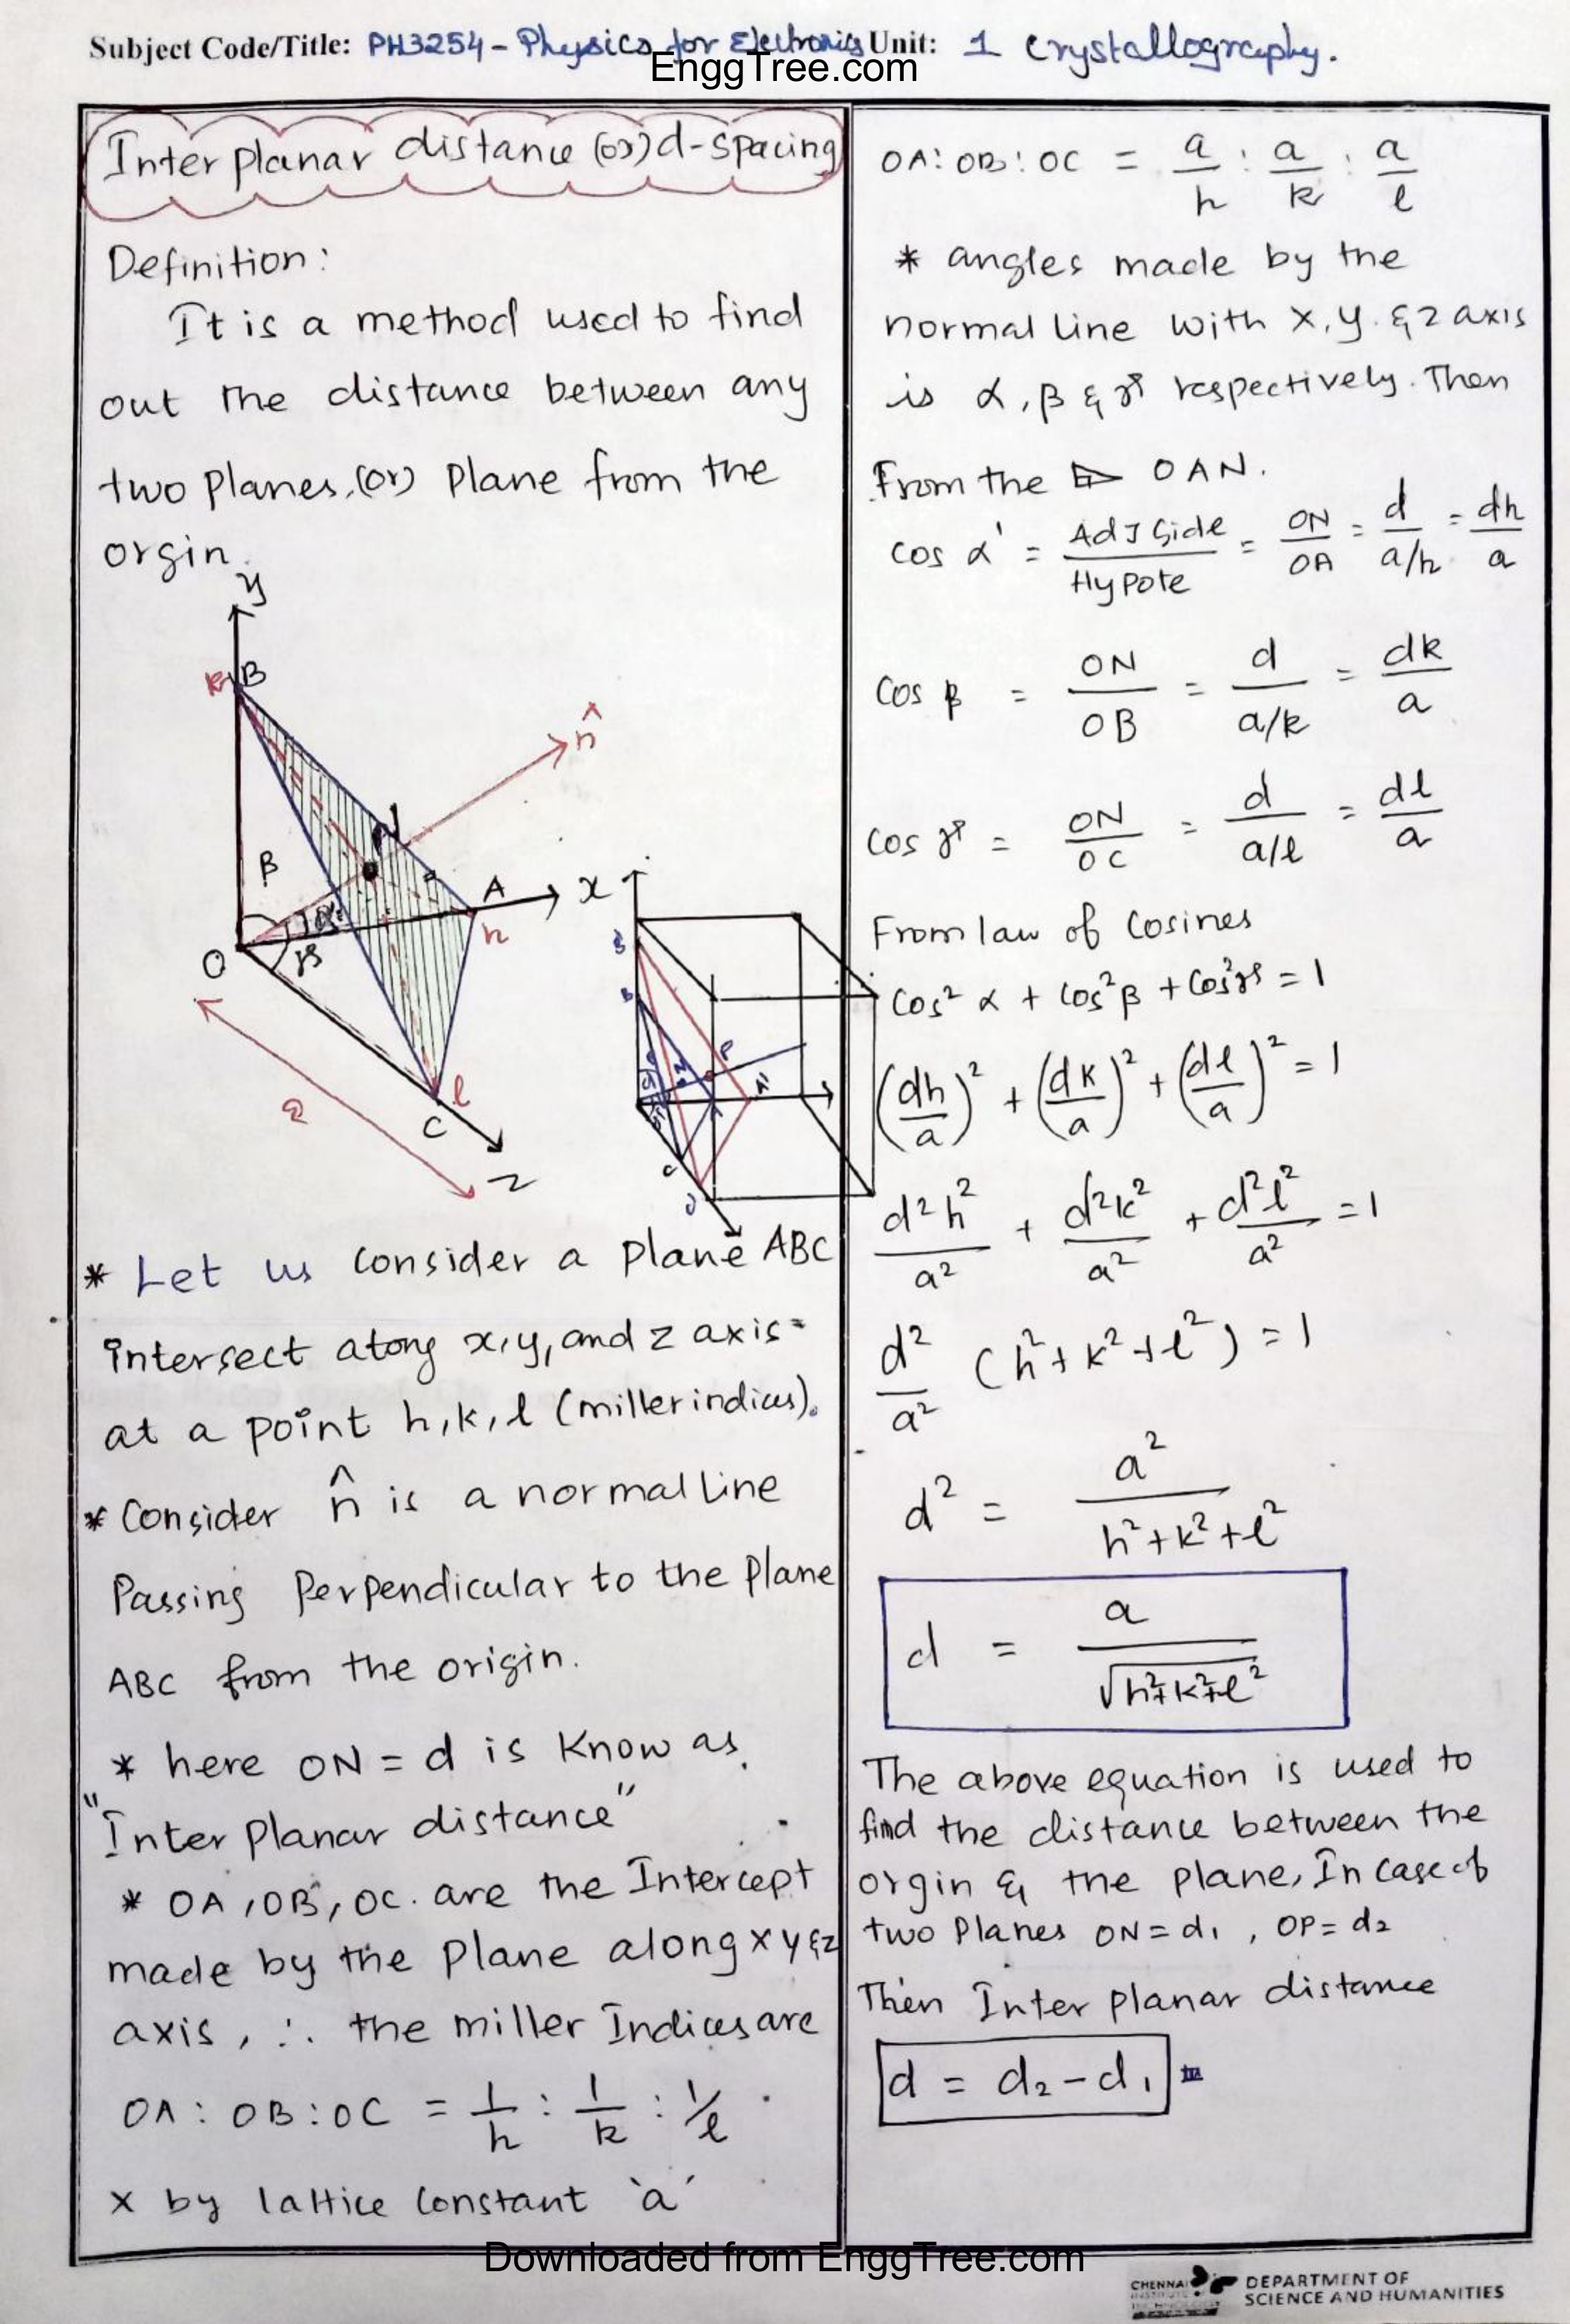 Subject Code/Title: PH3254 - Physics for Electronics Unit: 1 Crystallography.
EnggTree.com
Inter planar distance (or) d-spacing
Definition:
It is a method used to find
out the distance between any
two planes, (or) plane from the
orgin.
y
k B
n̂
N
β
A
x
h
O
α
γ
a
l
C
z
B
P
A'
C
* Let us consider a plane ABC
intersect along x,y, and z axis
at a point h, k, l (miller indices).
* Consider n̂ is a normal line
Passing Perpendicular to the Plane
ABC from the origin.
* here ON = d is Know as
"Inter planar distance"
* OA, OB, OC. are the Intercept
made by the plane along x y & z
axis, ∴ the miller Indices are
OA : OB : OC = 1/h : 1/k : 1/l
x by lattice constant 'a'
OA : OB : OC = a/h : a/k : a/l
* angles made by the
normal line with x, y. & z axis
is α, β & γ respectively. Then
From the ▷ OAN.
cos α' = Adj Side/Hypote = ON/OA = d/a/h = dh/a
Cos β = ON/OB = d/a/k = dk/a
Cos γ = ON/OC = d/a/l = dl/a
From law of Cosines
Cos² α + Cos² β + Cos² γ = 1
(dh/a)² + (dk/a)² + (dl/a)² = 1
d²h²/a² + d²k²/a² + d²l²/a² = 1
d²/a² (h² + k² + l²) = 1
d² = a²/h²+k²+l²
d = a/√h²+k²+l²
The above equation is used to
find the distance between the
orgin & the plane, In case of
two Planes ON = d₁ , OP = d₂
Then Inter planar distance
d = d₂ - d₁
Downloaded from EnggTree.com
CHENNAI
DEPARTMENT OF
SCIENCE AND HUMANITIES